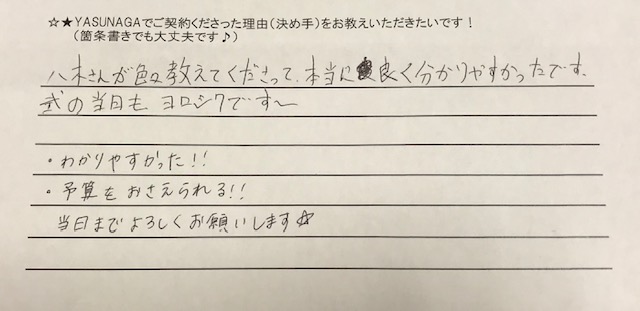 ☆★YASUNAGAでご契約くださった理由(決め手)をお教えいただきたいです!
(箇条書きでも大丈夫です♪)
八木さんが色々教えてくださって、本当に良く分かりやすかったです。
式の当日も ヨロシクです〜
・わかりやすかった!!
・予算をおさえられる!!
当日までよろしくお願いします☆